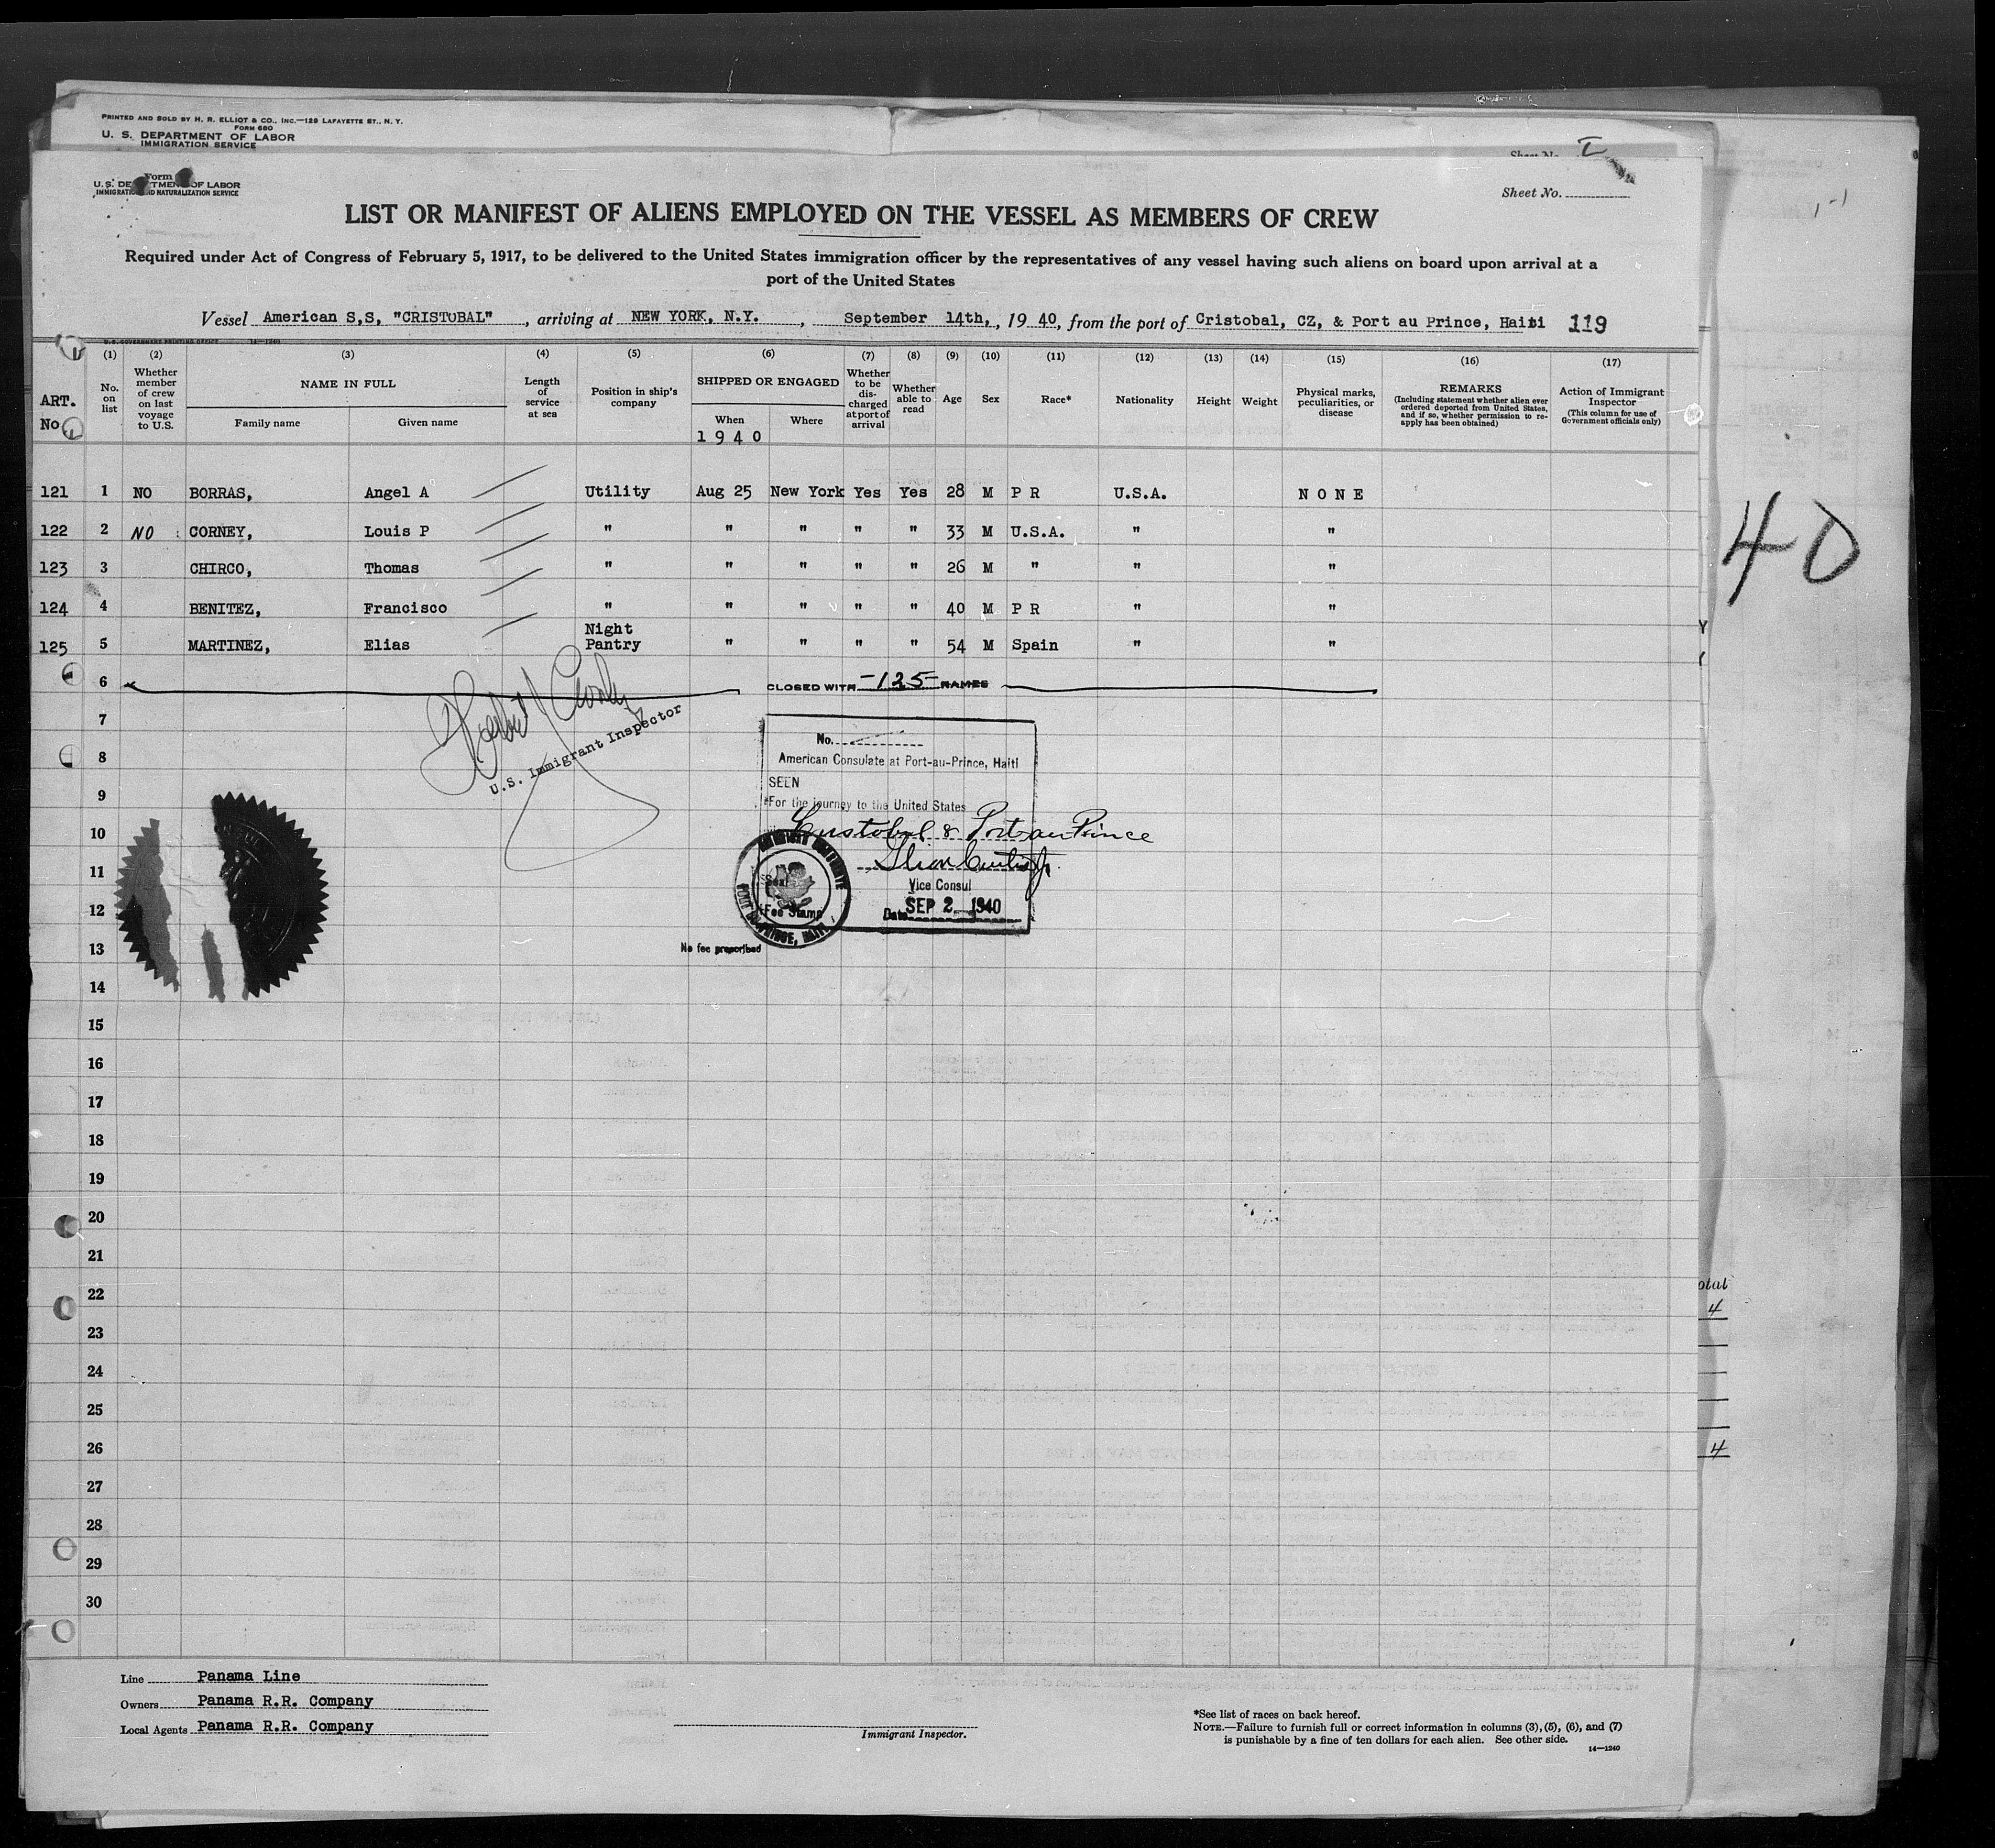 PRINTED AND SOLD BY H. R. ELLIOT & CO., INC.—129 LAFAYETTE ST., N. Y.
FORM 680
U. S. DEPARTMENT OF LABOR
IMMIGRATION SERVICE
Form
Sheet No.
Sheet No.
LIST OR MANIFEST OF ALIENS EMPLOYED ON THE VESSEL AS MEMBERS OF CREW
Required under Act of Congress of February 5, 1917, to be delivered to the United States immigration officer by the representatives of any vessel having such aliens on board upon arrival at a
port of the United States
Vessel American S,S, "CRISTOBAL", arriving at NEW YORK, N.Y., September 14th, 1940, from the port of Cristobal, CZ, & Port au Prince, Haiti 119
U.S. GOVERNMENT PRINTING OFFICE 14—1240
(1) (2) (3) (4) (5) (6) (7) (8) (9) (10) (11) (12) (13) (14) (15) (16) (17)
ART. No
No. on list
Whether member of crew on last voyage to U.S.
NAME IN FULL
Family name Given name
Length of service at sea
Position in ship's company
SHIPPED OR ENGAGED
When Where
1 9 4 0
Whether to be discharged at port of arrival
Whether able to read
Age
Sex
Race*
Nationality
Height
Weight
Physical marks, peculiarities, or disease
REMARKS
(Including statement whether alien ever ordered deported from United States, and if so, whether permission to reapply has been obtained)
Action of Immigrant Inspector
(This column for use of Government officials only)
121 1 NO BORRAS, Angel A Utility Aug 25 New York Yes Yes 28 M P R U.S.A. N O N E
122 2 NO CORNEY, Louis P " " " " " 33 M U.S.A. " "
123 3 CHIRCO, Thomas " " " " " 26 M " " "
124 4 BENITEZ, Francisco " " " " " 40 M P R " "
125 5 MARTINEZ, Elias Night Pantry " " " " 54 M Spain " "
6 CLOSED WITH -125- NAMES
7
8
9
10
11
12
13
14
15
16
17
18
19
20
21
22
23
24
25
26
27
28
29
30
U.S. Immigrant Inspector
No.
American Consulate at Port-au-Prince, Haiti
SEEN
For the journey to the United States
Cristobal & Port au Prince
Vice Consul
Date SEP 2 1940
Seal
Fee Stamp
AMERICAN CONSULATE
PORT AU PRINCE, HAITI
No fee prescribed
40
otal
4
4
Line Panama Line
Owners Panama R.R. Company
Local Agents Panama R.R. Company
Immigrant Inspector.
*See list of races on back hereof.
NOTE.—Failure to furnish full or correct information in columns (3), (5), (6), and (7)
is punishable by a fine of ten dollars for each alien. See other side.
14—1240